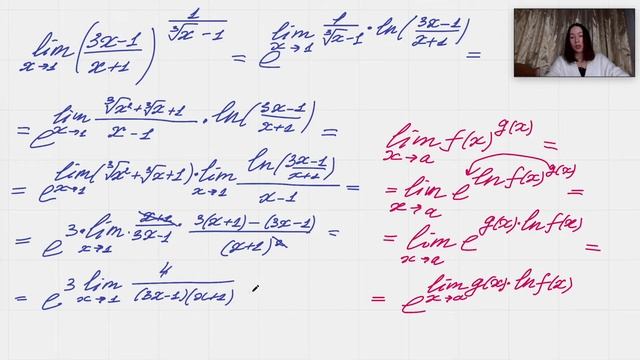 lim x→1 ((3x-1)/(x+1))^(1/(∛x - 1)) = e^(lim x→1 1/(∛x-1) · ln((3x-1)/(x+1))) =
= e^(lim x→1 (∛x² + ∛x + 1)/(x-1) · ln((3x-1)/(x+1))) =
= e^(lim x→1 (∛x² + ∛x + 1) · lim x→1 ln((3x-1)/(x+1))/(x-1)) =
= e^(3 · lim x→1 · (x+1)/(3x-1) · (3(x+1) - (3x-1))/(x+1)²) =
= e^(3 lim x→1 4/((3x-1)(x+1)))
lim x→a f(x)^g(x) =
= lim x→a e^(ln f(x)^g(x)) =
= lim x→a e^(g(x)·ln f(x)) =
= e^(lim x→a g(x)·ln f(x))